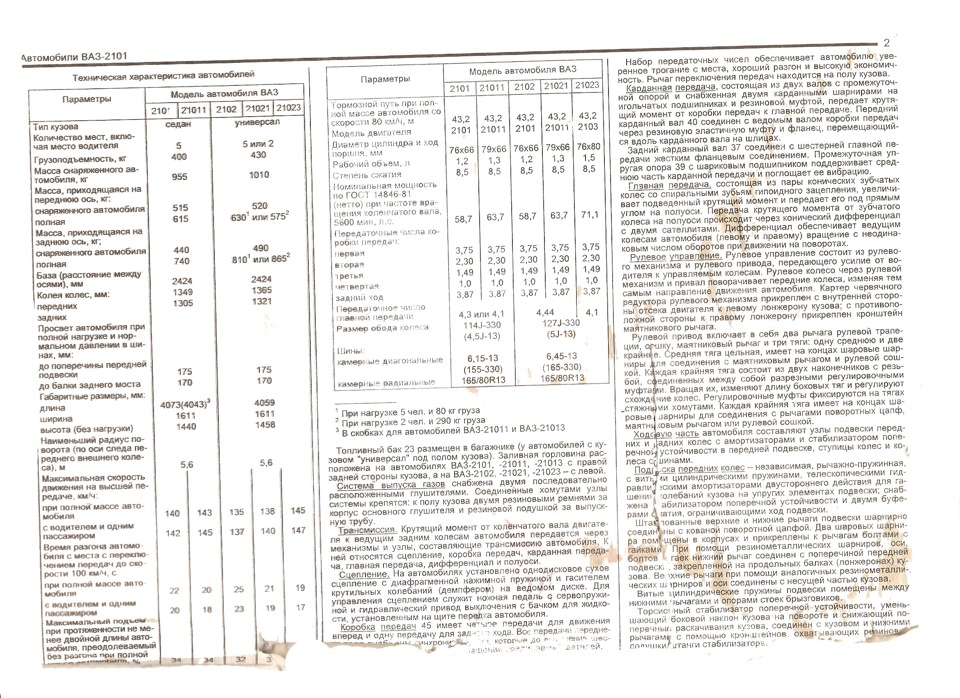 Автомобили ВАЗ-2101
2
Техническая характеристика автомобилей
Параметры
Модель автомобиля ВАЗ
2101 21011 2102 21021 21023
Тип кузова седан универсал
Количество мест, вклю-
чая место водителя 5 5 или 2
Грузоподъемность, кг 400 430
Масса снаряженного ав-
томобиля, кг 955 1010
Масса, приходящаяся на
переднюю ось, кг:
снаряженного автомобиля 515 520
полная 615 630¹ или 575²
Масса, приходящаяся на
заднюю ось, кг;
снаряженного автомобиля 440 490
полная 740 810¹ или 865²
База (расстояние между
осями), мм 2424 2424
Колея колес, мм: 1349 1365
передних 1305 1321
задних
Просвет автомобиля при
полной нагрузке и нор-
мальном давлении в ши-
нах, мм:
до поперечины передней
подвески 175 175
до балки заднего моста 170 170
Габаритные размеры, мм:
длина 4073(4043)³ 4059
ширина 1611 1611
высота (без нагрузки) 1440 1458
Наименьший радиус по-
ворота (по оси следа пе-
реднего внешнего коле-
са), м 5,6 5,6
Максимальная скорость
движения на высшей пе-
редаче, км/ч:
при полной массе авто-
мобиля 140 143 135 138 145
с водителем и одним
пассажиром 142 145 137 140 147
Время разгона автомо-
биля с места с переклю-
чением передач до ско-
рости 100 км/ч, с
при полной массе авто-
мобиля 22 20 25 21 19
с водителем и одним
пассажиром 20 18 23 19 17
Максимальный подъем
при протяженности не ме-
нее двойной длины авто-
мобиля, преодолеваемый
без разгона при полной
34 34 32
Параметры
Модель автомобиля ВАЗ
2101 21011 2102 21021 21023
Тормозной путь при пол-
ной массе автомобиля со
скорости 80 км/ч, м 43,2 43,2 43,2 43,2 43,2
Модель двигателя 2101 21011 2101 21011 2103
Диаметр цилиндра и ход
поршня, мм 76х66 79х66 76х66 79х66 76х80
Рабочий объем, л 1,2 1,3 1,2 1,3 1,5
Степень сжатия 8,5 8,5 8,5 8,5 8,5
Номинальная мощность
по ГОСТ 14846-81
(нетто) при частоте вра-
щения коленчатого вала,
5600 мин, л.с. 58,7 63,7 58,7 63,7 71,1
Передаточные числа ко-
робки передач:
первая 3,75 3,75 3,75 3,75 3,75
вторая 2,30 2,30 2,30 2,30 2,30
третья 1,49 1,49 1,49 1,49 1,49
четвертая 1,0 1,0 1,0 1,0 1,0
задний ход 3,87 3,87 3,87 3,87 3,87
Передаточное число
главной передачи 4,3 или 4,1 4,44 4,1
Размер обода колеса 114J-330 127J-330
(4,5J-13) (5J-13)
Шины:
камерные диагональные 6,15-13 6,45-13
(155-330) (165-330)
камерные радиальные 165/80R13 165/80R13
¹ При нагрузке 5 чел. и 80 кг груза
² При нагрузке 2 чел. и 290 кг груза
³ В скобках для автомобилей ВАЗ-21011 и ВАЗ-21013
Топливный бак 23 размещен в багажнике (у автомобилей с ку-
зовом "универсал" под полом кузова). Заливная горловина рас-
положена на автомобилях ВАЗ-2101, -21011, -21013 с правой
задней стороны кузова, а на ВАЗ-2102, -21021, -21023 – с левой.
Система выпуска газов снабжена двумя последовательно
расположенными глушителями. Соединенные хомутами узлы
системы крепятся: к полу кузова двумя резиновыми ремнями за
корпус основного глушителя и резиновой подушкой за выпуск-
ную трубу.
Трансмиссия. Крутящий момент от коленчатого вала двигате-
ля к ведущим задним колесам автомобиля передается через
механизмы и узлы, составляющие трансмиссию автомобиля. К
ней относятся сцепление, коробка передач, карданная переда-
ча, главная передача, дифференциал и полуоси.
Сцепление. На автомобилях установлено однодисковое сухое
сцепление с диафрагменной нажимной пружиной и гасителем
крутильных колебаний (демпфером) на ведомом диске. Для
управления сцеплением служит ножная педаль с сервопружи-
ной и гидравлический привод выключения с бачком для жидко-
сти, установленным на щите передка автомобиля.
Коробка передач 45 имеет четыре передачи для движения
вперед и одну передачу для заднего хода. Все передачи передне-
Набор передаточных чисел обеспечивает автомобилю уве-
ренное трогание с места, хороший разгон и высокую экономич-
ность. Рычаг переключения передач находится на полу кузова.
Карданная передача, состоящая из двух валов с промежуточ-
ной опорой и снабженная двумя карданными шарнирами на
игольчатых подшипниках и резиновой муфтой, передает крутя-
щий момент от коробки передач к главной передаче. Передний
карданный вал 40 соединен с ведомым валом коробки передач
через резиновую эластичную муфту и фланец, перемещающий-
ся вдоль карданного вала на шлицах.
Задний карданный вал 37 соединен с шестерней главной пе-
редачи жестким фланцевым соединением. Промежуточная уп-
ругая опора 39 с шариковым подшипником поддерживает сред-
нюю часть карданной передачи и поглощает ее вибрацию.
Главная передача, состоящая из пары конических зубчатых
колес со спиральными зубьями гипоидного зацепления, увеличи-
вает подведенный крутящий момент и передает его под прямым
углом на полуоси. Передача крутящего момента от зубчатого
колеса на полуоси происходит через конический дифференциал
с двумя сателлитами. Дифференциал обеспечивает ведущим
колесам автомобиля (левому и правому) вращение с неодина-
ковым числом оборотов при движении на поворотах.
Рулевое управление. Рулевое управление состоит из рулево-
го механизма и рулевого привода, передающего усилие от во-
дителя к управляемым колесам. Рулевое колесо через рулевой
механизм и привал поворачивает передние колеса, изменяя тем
самым направление движения автомобиля. Картер червячного
редуктора рулевого механизма прикреплен с внутренней сторо-
ны отсека двигателя к левому лонжерону кузова; с противопо-
ложной стороны к правому лонжерону прикреплен кронштейн
маятникового рычага.
Рулевой привод включает в себя два рычага рулевой трапе-
ции, сошку, маятниковый рычаг и три тяги: одну среднюю и две
крайние. Средняя тяга цельная, имеет на концах шаровые шар-
ниры для соединения с маятниковым рычагом и рулевой сош-
кой. Каждая крайняя тяга состоит из двух наконечников с резь-
бой, соединенных между собой разрезными регулировочными
муфтами. Вращая их, изменяют длину боковых тяг и регулируют
схождение колес. Регулировочные муфты фиксируются на тягах
стяжными хомутами. Каждая крайняя тяга имеет на концах ша-
ровые шарниры для соединения с рычагами поворотных цапф,
маятниковым рычагом или рулевой сошкой.
Ходовую часть автомобиля составляют узлы подвески перед-
них и задних колес с амортизаторами и стабилизатором попе-
речной устойчивости в передней подвеске, ступицы колес и ко-
леса с шинами.
Подвеска передних колес – независимая, рычажно-пружинная,
с витыми цилиндрическими пружинами, телескопическими гид-
равлическими амортизаторами двустороннего действия для га-
шения колебаний кузова на упругих элементах подвески; снаб-
жена стабилизатором поперечной устойчивости и двумя буфе-
рами сжатия, ограничивающими ход подвески.
Штампованные верхние и нижние рычаги подвески шарнирно
соединены с кованой поворотной цапфой. Два шаровых шарни-
ра помещены в корпусах и прикреплены к рычагам болтами с
гайками. При помощи резинометаллических шарниров, оси,
болтов и гаек нижний рычаг соединен с поперечиной передней
подвески, закрепленной на продольных балках (лонжеронах) ку-
зова. Верхние рычаги при помощи аналогичных резинометалли-
ческих шарниров и оси соединены с несущей частью кузова.
Витые цилиндрические пружины подвески помещены между
нижними рычагами и опорами стоек брызговиков.
Торсионный стабилизатор поперечной устойчивости, умень-
шающий боковой наклон кузова на повороте и снижающий по-
перечные раскачивания кузова, соединен с кузовом и нижними
рычагами с помощью кронштейнов, охватывающих резиновые
подушки штанги стабилизатора.